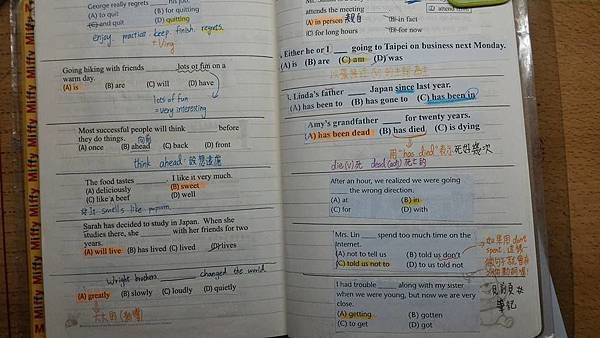 George really regrets ___ his job.
(A) to quit (B) for quitting
(C) and quit (D) quitting
enjoy. practice. keep. finish. regrets.
+ Ving
Going hiking with friends ___ lots of fun on a
warm day.
(A) is (B) are (C) will (D) have
lots of fun
= very interesting
Most successful people will think ___ before
they do things.
(A) once (B) ahead (C) back (D) front
think ahead
The food tastes ___. I like it very much.
(A) deliciously (B) sweet
(C) like a beef (D) well
It smells like popcorn.
Sarah has decided to study in Japan. When she
studies there, she ___ with her friends for two
years.
(A) will live (B) has lived (C) lived (D) lives
Wright brothers ___ changed the world
(A) greatly (B) slowly (C) loudly (D) quietly
attends the meeting
(A) in person 親自 (B) in fact
(C) for long hours (D) for now
Either he or I ___ going to Taipei on business next Monday.
(A) is (B) are (C) am (D) was
Linda's father ___ Japan since last year.
(A) has been to (B) has gone to (C) has been in
Amy's grandfather ___ for twenty years.
(A) has been dead (B) has died (C) is dying
用 "has died" 表示死幾次
die (v) 死 dead (adj) 死亡的
After an hour, we realized we were going
___ the wrong direction.
(A) at (B) in
(C) for (D) with
Mrs. Lin ___ spend too much time on the
Internet.
(A) not to tell us (B) told us don't
(C) told us not to (D) to us told not
I had trouble ___ along with my sister
when we were young, but now we are very
close.
(A) getting (B) gotten
(C) to get (D) got
筆記
Miffy Miffy Miffy Miffy Miffy